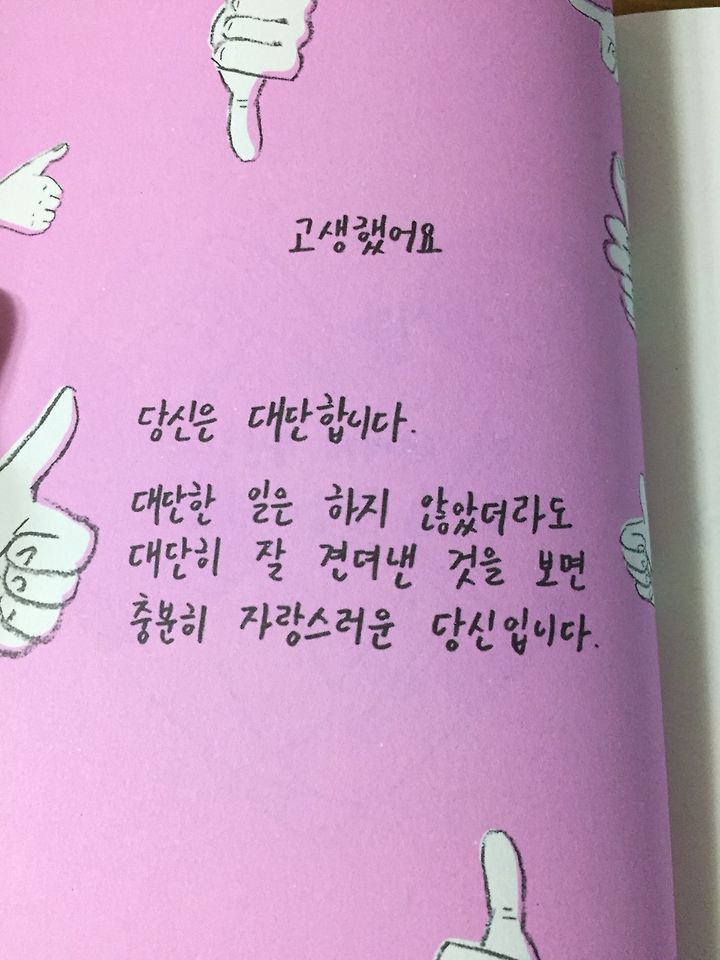 고생했어요
당신은 대단합니다.
대단한 일은 하지 않았더라도
대단히 잘 견뎌낸 것을 보면
충분히 자랑스러운 당신입니다.